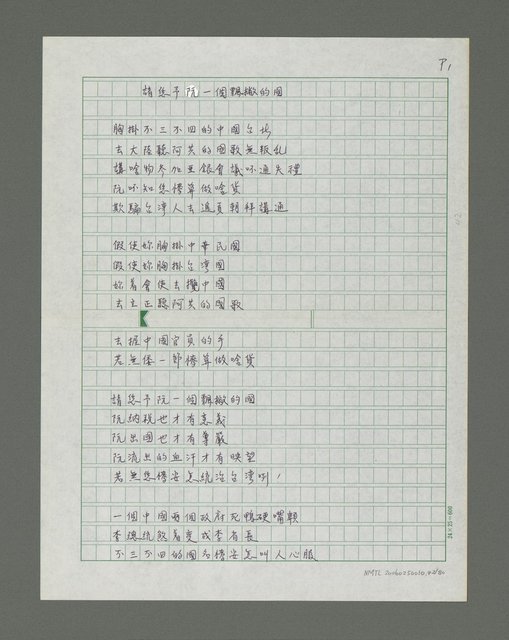 P1
請您予阮一個飄撇的國
胸掛不三不四的中國台北
去大陸聽阿共的國歌無叛乱
講啥物參加亞銀會議呣通失禮
阮呣知您倩算做啥貨
欺騙台灣人去過頁朝拜講通
假使妳胸掛中華民國
假使妳胸掛台灣國
妳着會使去攬中國
去立正聽阿共的國歌
去握中國官員的手
若無倭一節倩算做啥貨
請您予阮一個飄撇的國
阮納稅也才有意義
阮出國也才有尊嚴
阮流出的血汗才有映望
若無您倩安怎統治台灣咧!
一個中國兩個政府死鴨硬嘴䫌
李總統煞着變成李省長
不三不四的國名倩安怎叫人心服
24×25=600